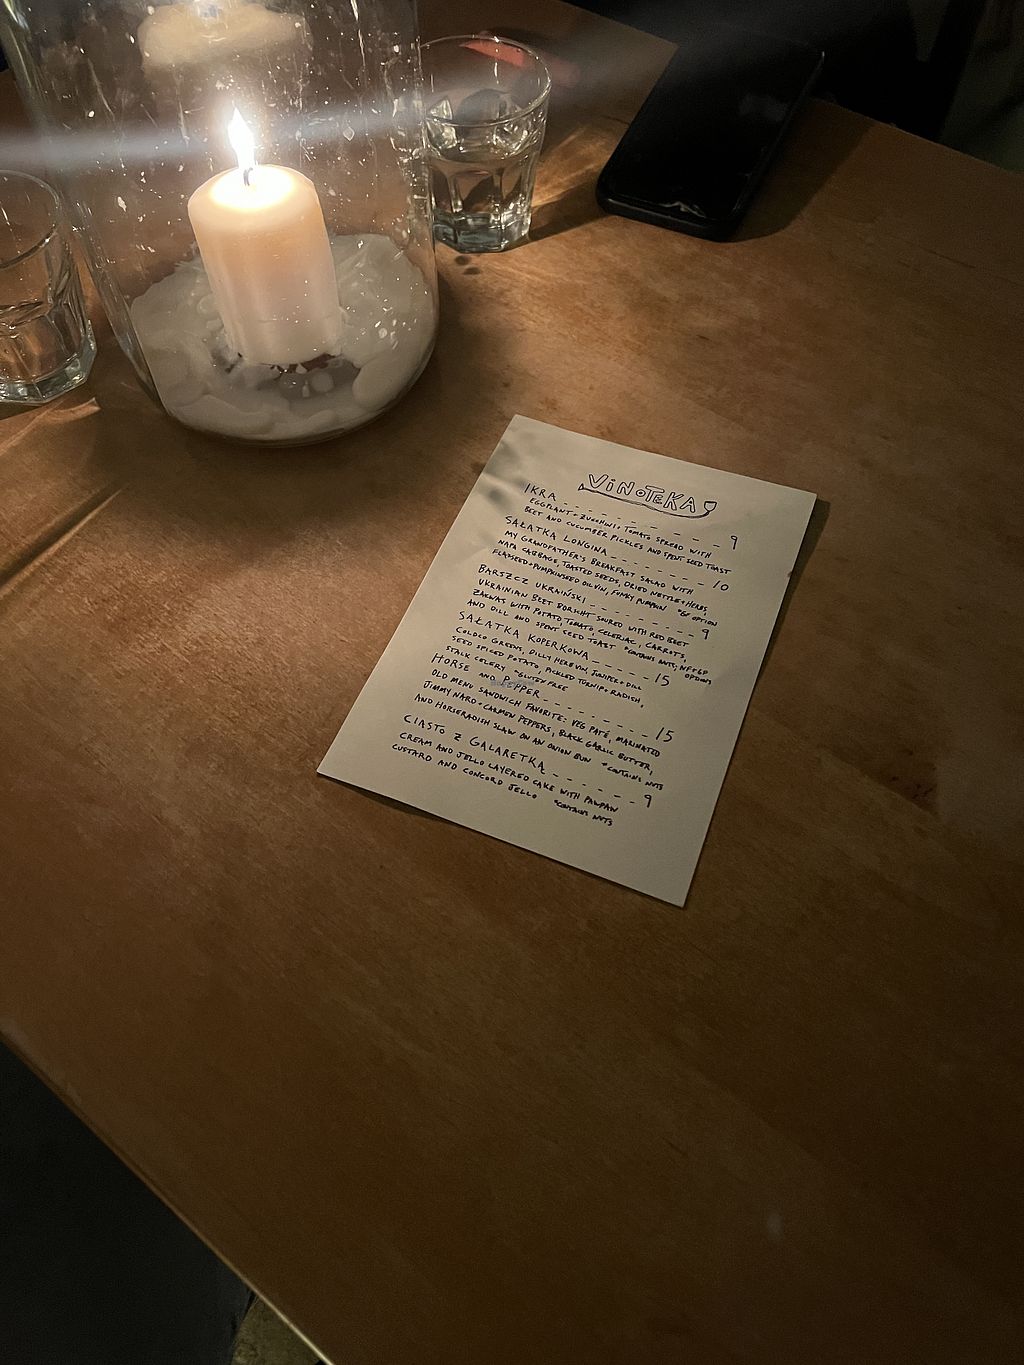 VINOTEKA
IKRA - - - - - - - - - 9
EGGPLANT + ZUCCHINI + TOMATO SPREAD WITH
BEET AND CUCUMBER PICKLES AND SPENT SEED TOAST
SAŁATKA LONGINA - - - - - - - - 10
MY GRANDFATHER'S BREAKFAST SALAD WITH
NAPA CABBAGE, TOASTED SEEDS, DRIED NETTLE + HERBS,
FLAXSEED + PUMPKINSEED OIL VIN, FUNKY PUMPKIN *GF OPTION
BARSZCZ UKRAIŃSKI - - - - - - - - 9
UKRAINIAN BEET BORSCHT SOURED WITH RED BEET
ZAKWAS WITH POTATO, TOMATO, CELERIAC, CARROTS,
AND DILL AND SPENT SEED TOAST *CONTAINS NUTS; NF + GF OPTIONS
SAŁATKA KOPERKOWA - - - - - 15
GREENS, DILLY HERB VIN, JUNIPER + DILL
SEED SPICED POTATO, PICKLED TURNIP + RADISH,
STALK CELERY *GLUTEN FREE
HORSE AND PEPPER - - - - - - - - - 15
OLD MENU SANDWICH FAVORITE: VEG PATÉ, MARINATED
JIMMY NARD + CARMEN PEPPERS, BLACK GARLIC BUTTER,
AND HORSERADISH SLAW ON AN ONION BUN *CONTAINS NUTS
CIASTO Z GALARETKĄ - - - - - - 9
CREAM AND JELLO LAYERED CAKE WITH PAWPAW
CUSTARD AND CONCORD JELLO *CONTAINS NUTS